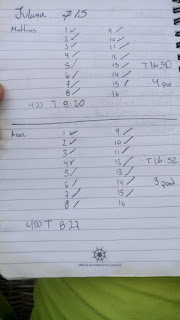 Juluna 7/5
Mathias 1 ✓ 9 ✓
2 ✓ 10 ✓
3 ✓ 11 ✓
4 ✓ 12 ✓
5 ✓ 13 ✓ T 16:30
6 ✓ 14 ✓ 4 por
7 ✓ 15 ✓
8 ✓ 16
400 T 8:20
1 ✓ 9 ✓
2 ✓ 10 ✓
3 ✓ 11 ✓
4 ✓ 12 ✓ T 16:52
5 ✓ 13 ✓
6 ✓ 14 ✓ 3 port
7 ✓ 15 ✓
8 ✓ 16
400 T 8:27